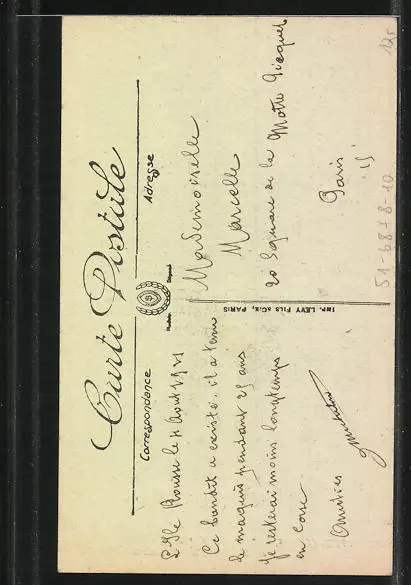 Carte Postale
Correspondance
Adresse
L'Ile Rousse le 7 Août 1921
Ce bandit a existé. il a tenu
le maquis pendant 25 ans
Je resterai moins longtemps
en Corse
Amitiés
Modèle Déposé
IMP. LÉVY FILS & Cie, PARIS
Mademoiselle
Marcelle
20 Square de la Motte Picquet
Paris
15
51-6878-10